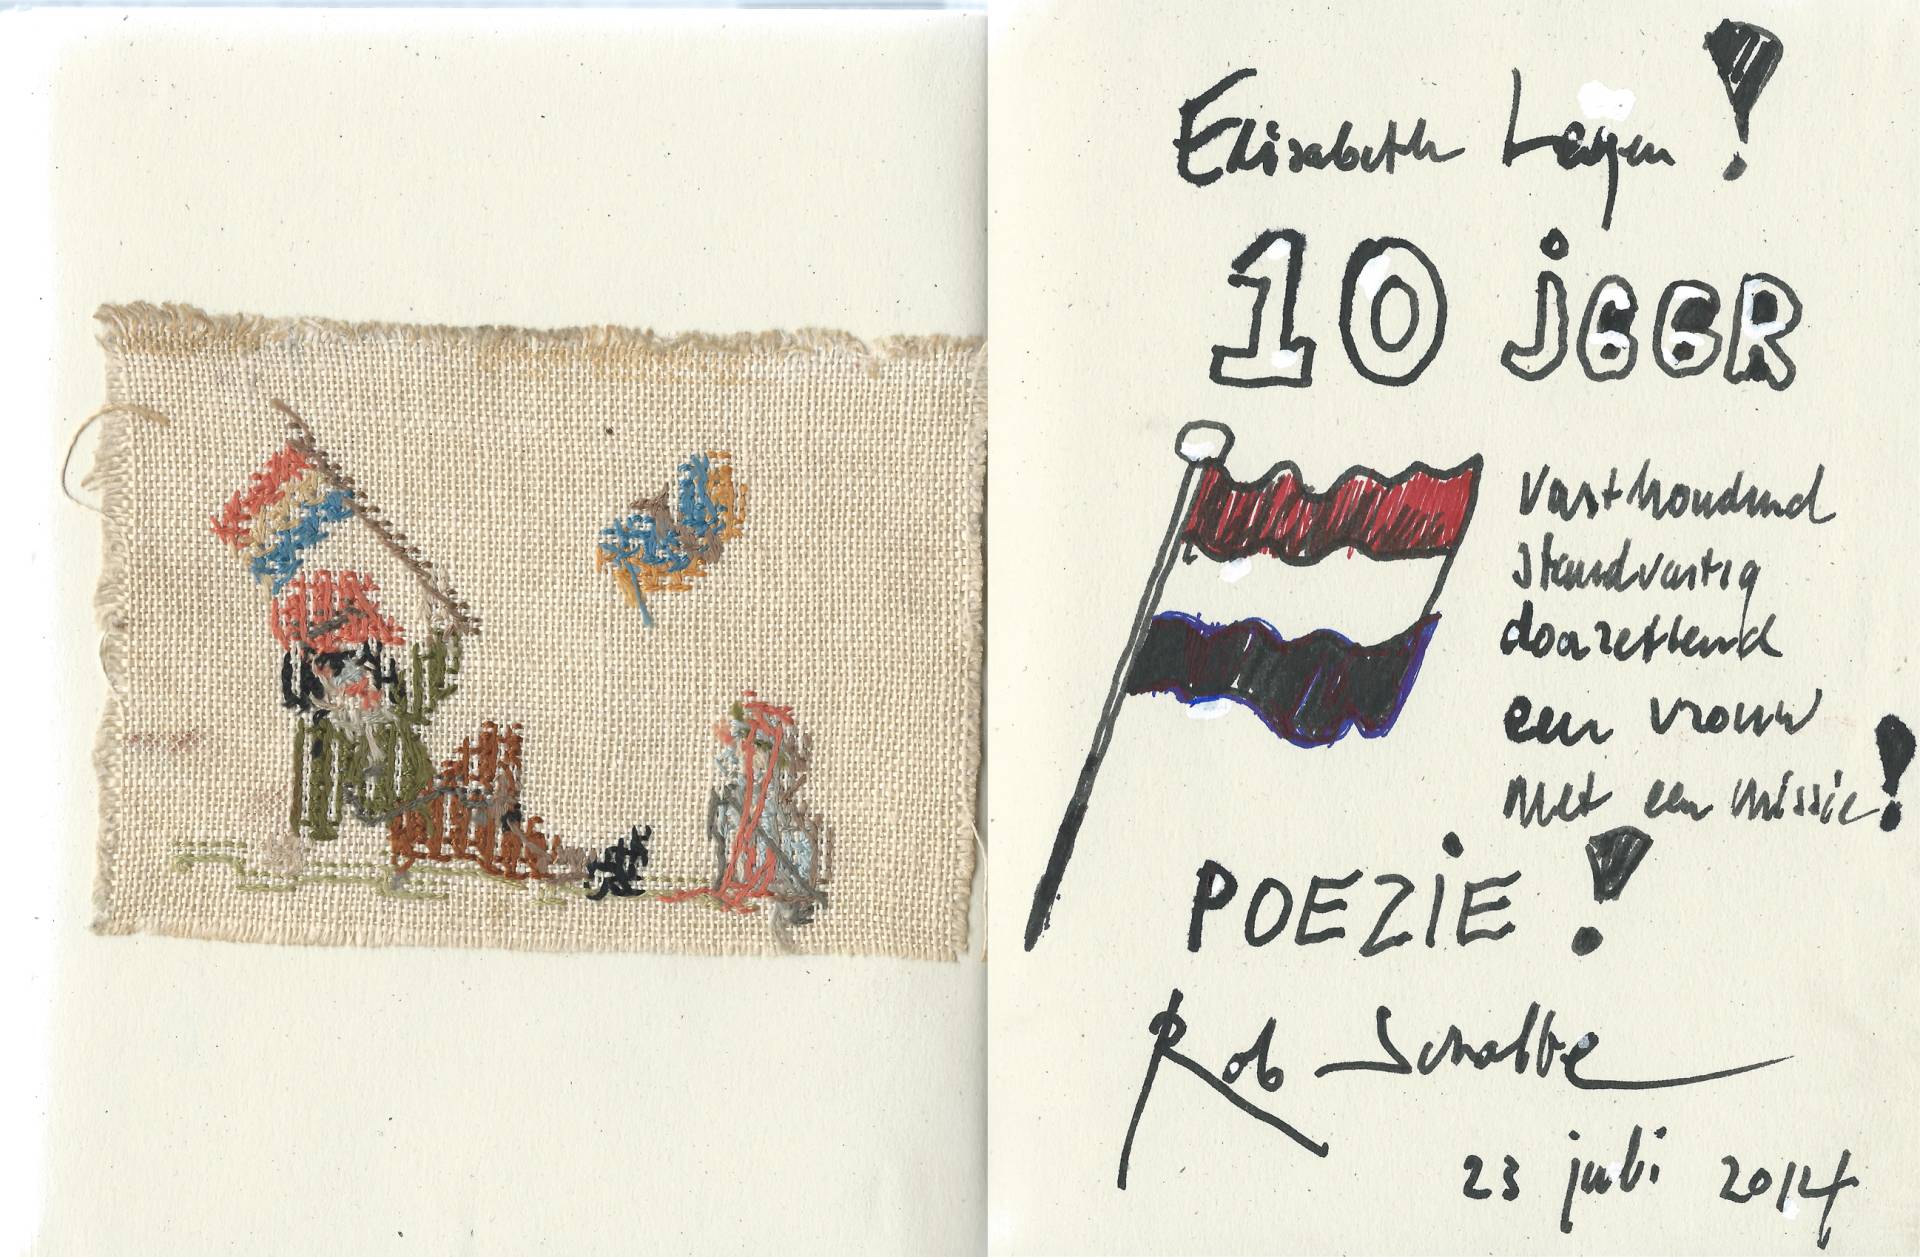 Elisabeth Leyen!
10 jaar
vasthoudend
standvastig
doorzettend
een vrouw
met een missie!
POEZIE!
Rob Schalbe
23 juli 2014